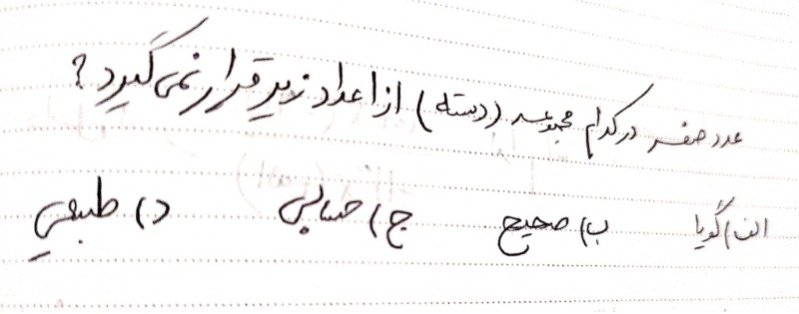 عدد صفر در کدام مجموعه (دسته) از اعداد زیر قرار نمی گیرد؟
الف) گویا ب) صحیح ج) حسابی د) طبیعی